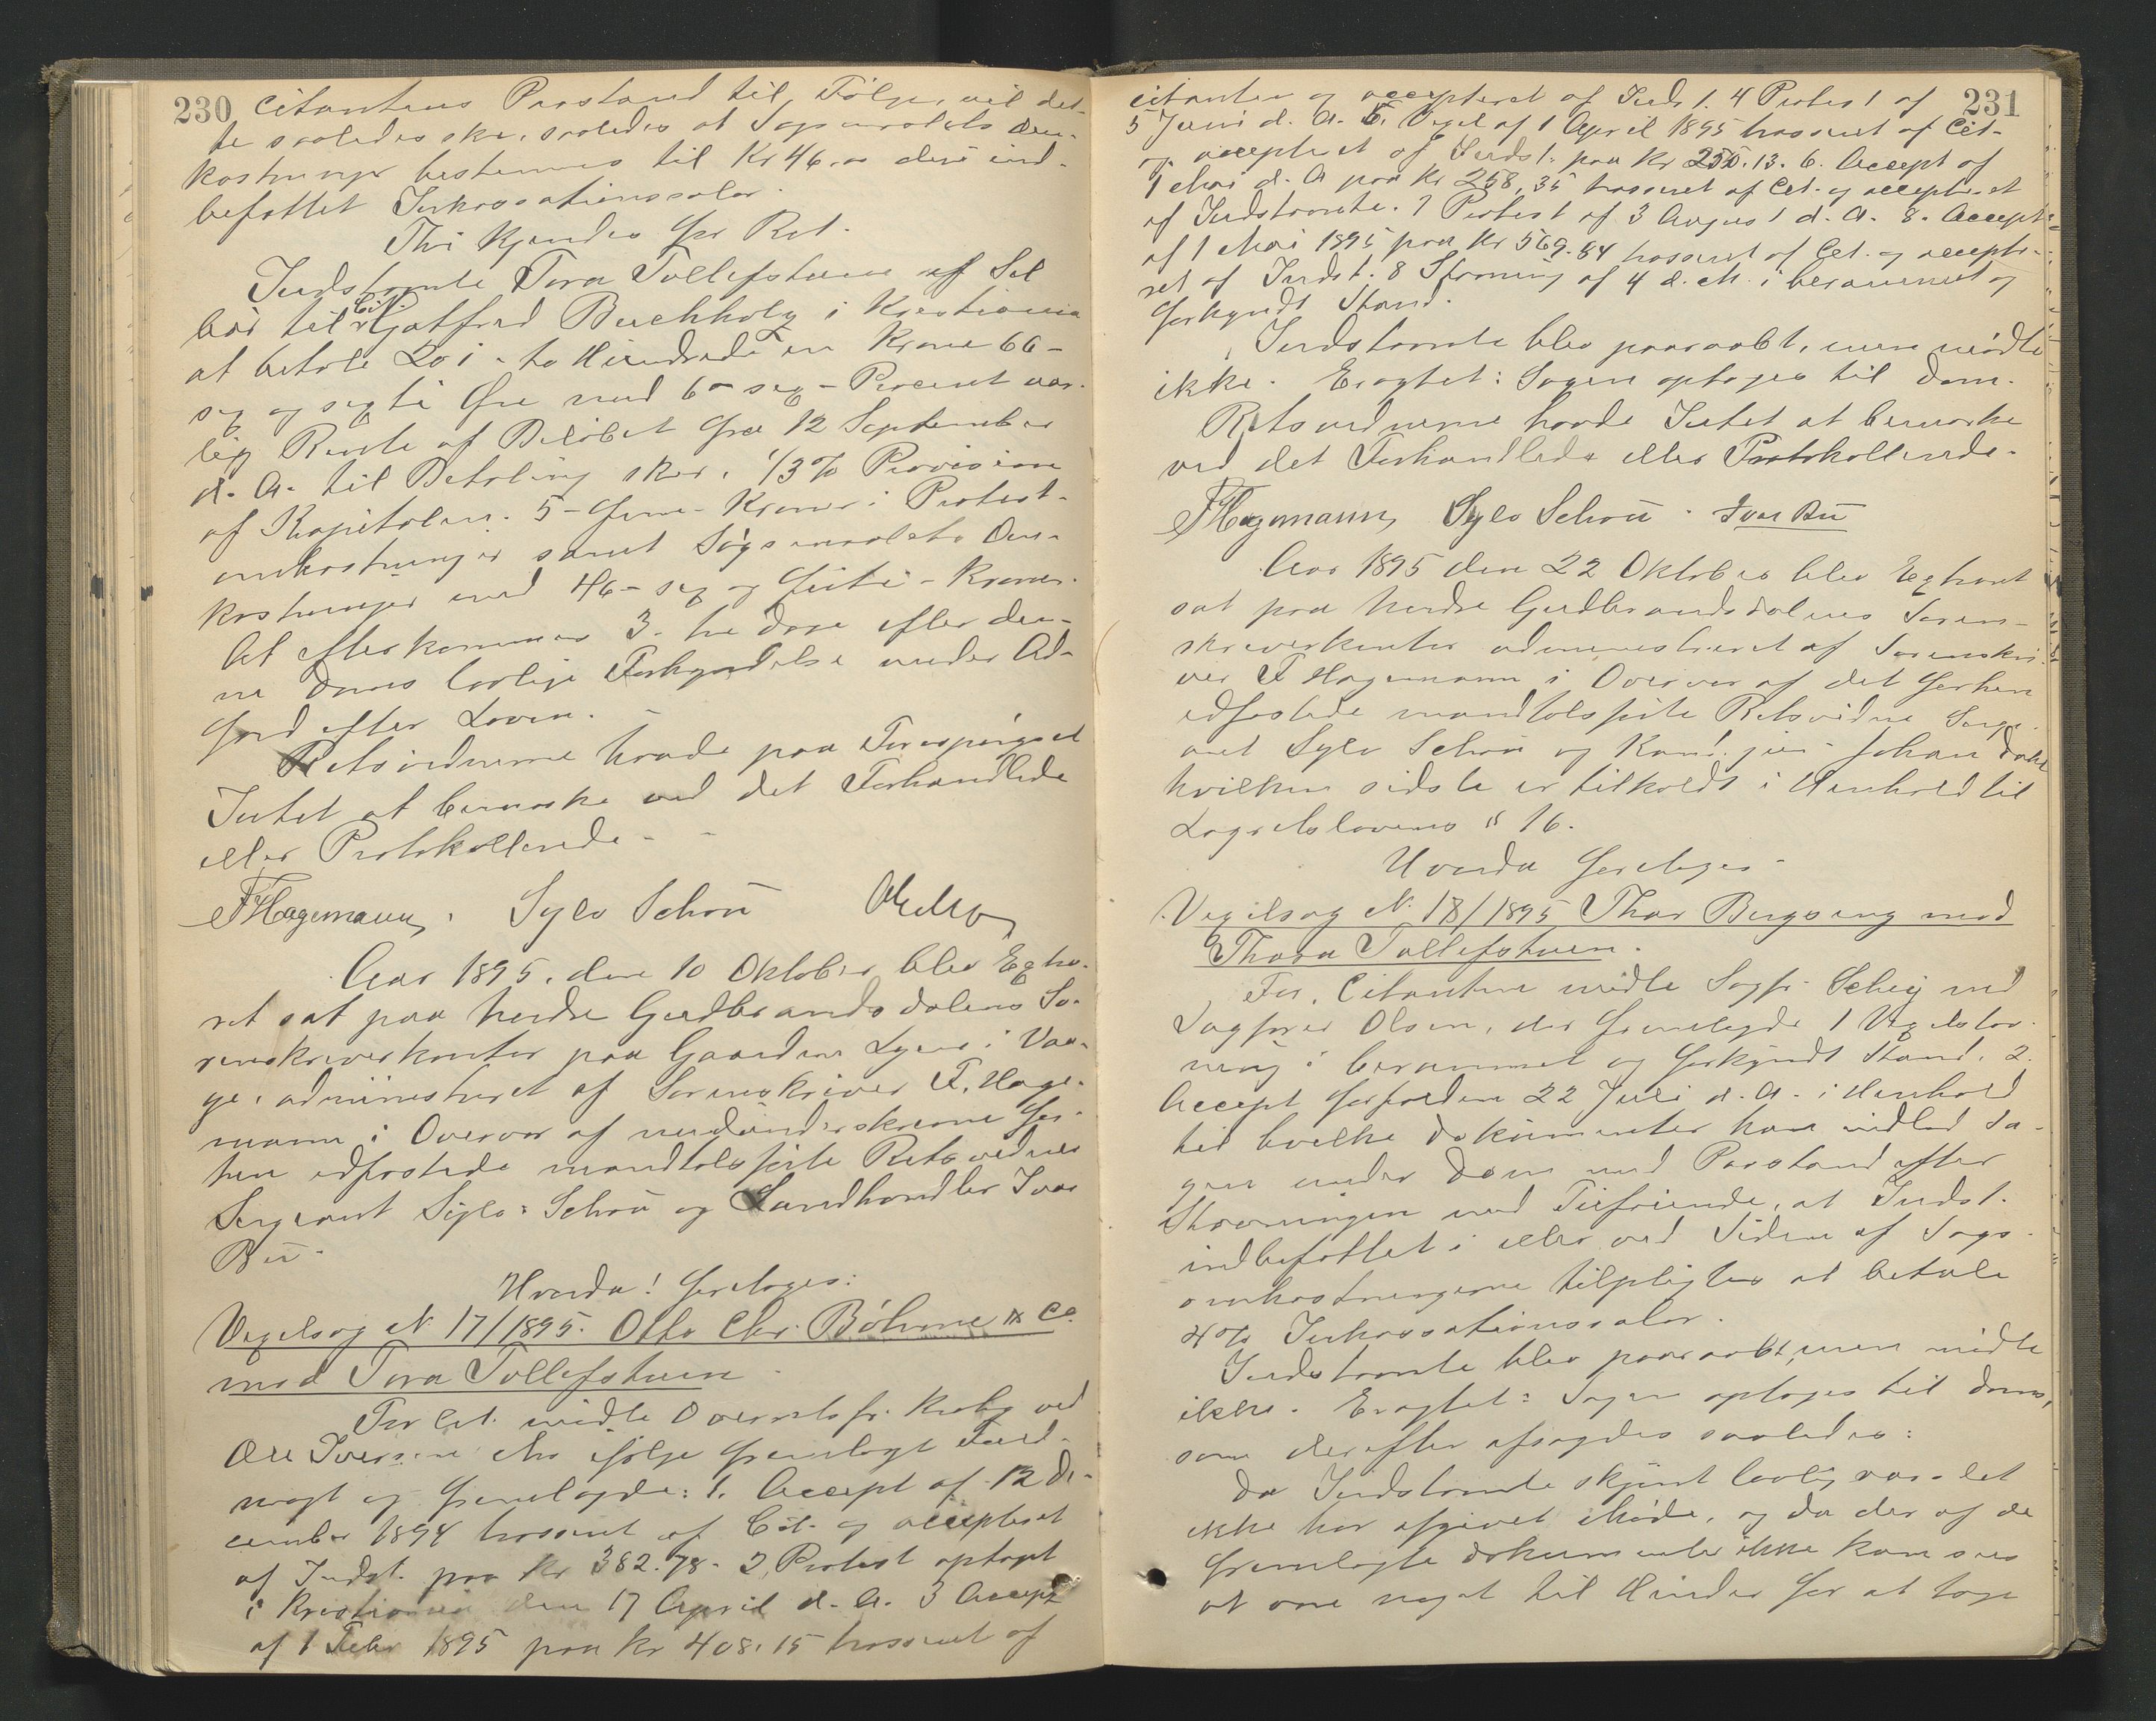 230
citantens Paastand til Følge, vil det-
te saaledes ske, saaledes at Sagsmaalets Om-
kostninger bestemmes til Kr 46,00 deri ind-
befattet Inkassationssalær.
Thi kjendes for Ret.
Indstævnte Tora Tollefshuen af Sel
bør til Cit. Gotfred Buchholz i Kristiania
at betale 201 - to Hundrede en Krone 66 -
sex og sexti Øre med 6 - sex - Procent aar-
lig Rente af Beløbet fra 12 September
d. A. til Betaling sker, 1/3 % Provision
af Kapitalen. 5 - fem - Kroner i Protest-
omkostninger samt Søgsmaalets Om-
kostninger med 46 - sex og førti - Kroner.
At efterkommes 3 - tre Dage efter den-
ne Doms lovlige Forkyndelse under Ad-
færd efter Loven.
Retsvidnerne havde paa Forespørgsel
Intet at bemærke ved det Forhandlede
eller Protokollerede -
F Hagemann, Sylv Schou
Aar 1895, den 10 Oktober blev Extra-
ret sat paa Nordre Gudbrandsdalens So-
renskriverkontor paa Gaarden Lyen i Vaa-
ge, administreret af Sorenskriver F. Hage-
mann i Overvær af nedenunderskrevne for-
hen edfæstede mandtalsførte Retsvidner
Sergeant Sylv. Schou og Landhandler Ivar
Bu.
Hvorda! foretoges:
Vexelsag N. 17/1895. Otto Chr. Böhme & Co.
mod Tora Tollefshuen.
For Cit. mødte Overretssfr. Koby ved
Ole Iversen Mo ifølge fremlagt Fuld-
magt og fremlagde: 1. Accept af 12 De-
cember 1894 trasseret af Cit. og accepteret
af Indst. paa Kr 382.78. 2, Protest optaget
i Kristiania den 17 April d. A. 3 Accept
af 1 Febr 1895 paa Kr 408.15 trasseret af
231
citanten og accepteret af Indst. 4 Protest af
5 Juni d. A. 5. Vexel af 1 April 1895 trasseret af Cit-
og accepteret af Indst. paa Kr 250.13. 6. Accept af
1 Mai d. A paa Kr 258,35 trasseret af Cit. og accepteret
af Indstævnte. 7 Protest af 3 August d. A. 8. Accept
af 1 Mai 1895 paa Kr 569.84 trasseret af Cit. og accepte-
ret af Indst. 8 Stævning af 4 d. M. i berammet og
forkyndt Stand.
Indstævnte blev paaraabt, men mødte
ikke. Eragtet: Sagen optages til Dom.
Retsvidnerne havde Intet at bemærke
ved det Forhandlede eller Protokollerede.
F Hagemann, Sylv Schou. Ivar Bu
Aar 1895 den 22 Oktober blev Extraret
sat paa Nordre Gudbrandsdalens Soren-
skriverkontor administreret af Sorenskri-
ver F Hagemann i Overvær af det forhen
edfæstede mandtalsførte Retsvidne Serge-
ant Sylv Schou og Kand. jur. Johan Dahl
hvilken sidste er tilkaldt i Henhold til
Lagretslovens § 16.
Hvorda foretoges -
Vexelsag N. 18/1895 Thor Bergseng mod
Thora Tollefshuen.
For Citanten mødte Sagfr. Scheij ved
Sagfører Olsen, der fremlagde 1 Vexelstæv-
ning i berammet og forkyndt Stand, 2.
Accept forfalden 22 Juli d. A. i Henhold
til hvilke Dokumenter han indlod Sa-
gen under Dom med Paastand efter
Stævningen med Tilføiende, at Indst.
indbefattet i eller ved Siden af Sags-
omkostningerne tilpligtes at betale
4% Inkassationssalær.
Indstævnte blev paaraabt, men mødte
ikke. Eragtet: Sagen optages til Doms,
som derefter afsagdes saaledes:
Da Indstævnte skjønt lovlig varslet
ikke har afgivet Møde, og da der af de
fremlagte Dokumenter ikke kan sees
at være noget til Hinder for at tage